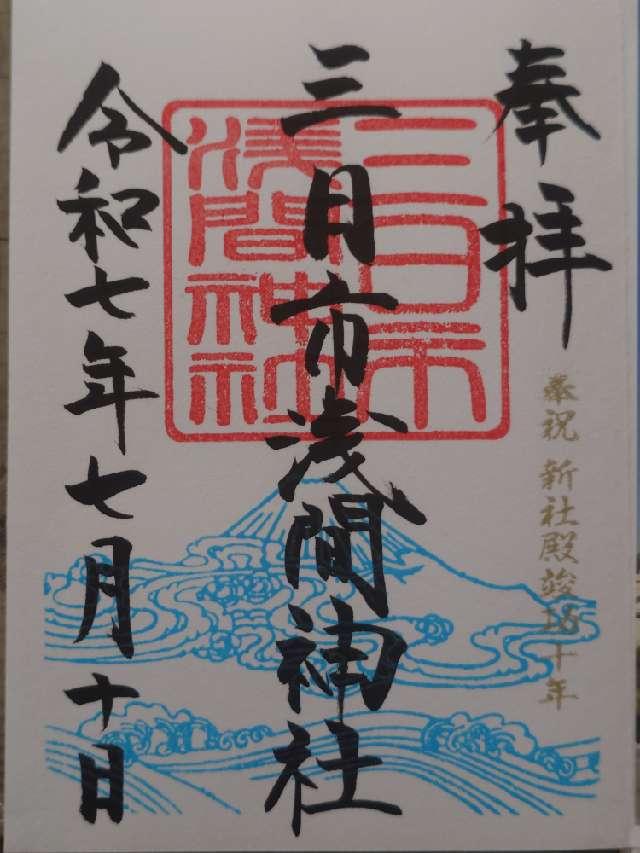 奉拝
奉祝 新社殿竣功十年
三日市浅間神社
三日市
浅間
神社
令和七年七月十日